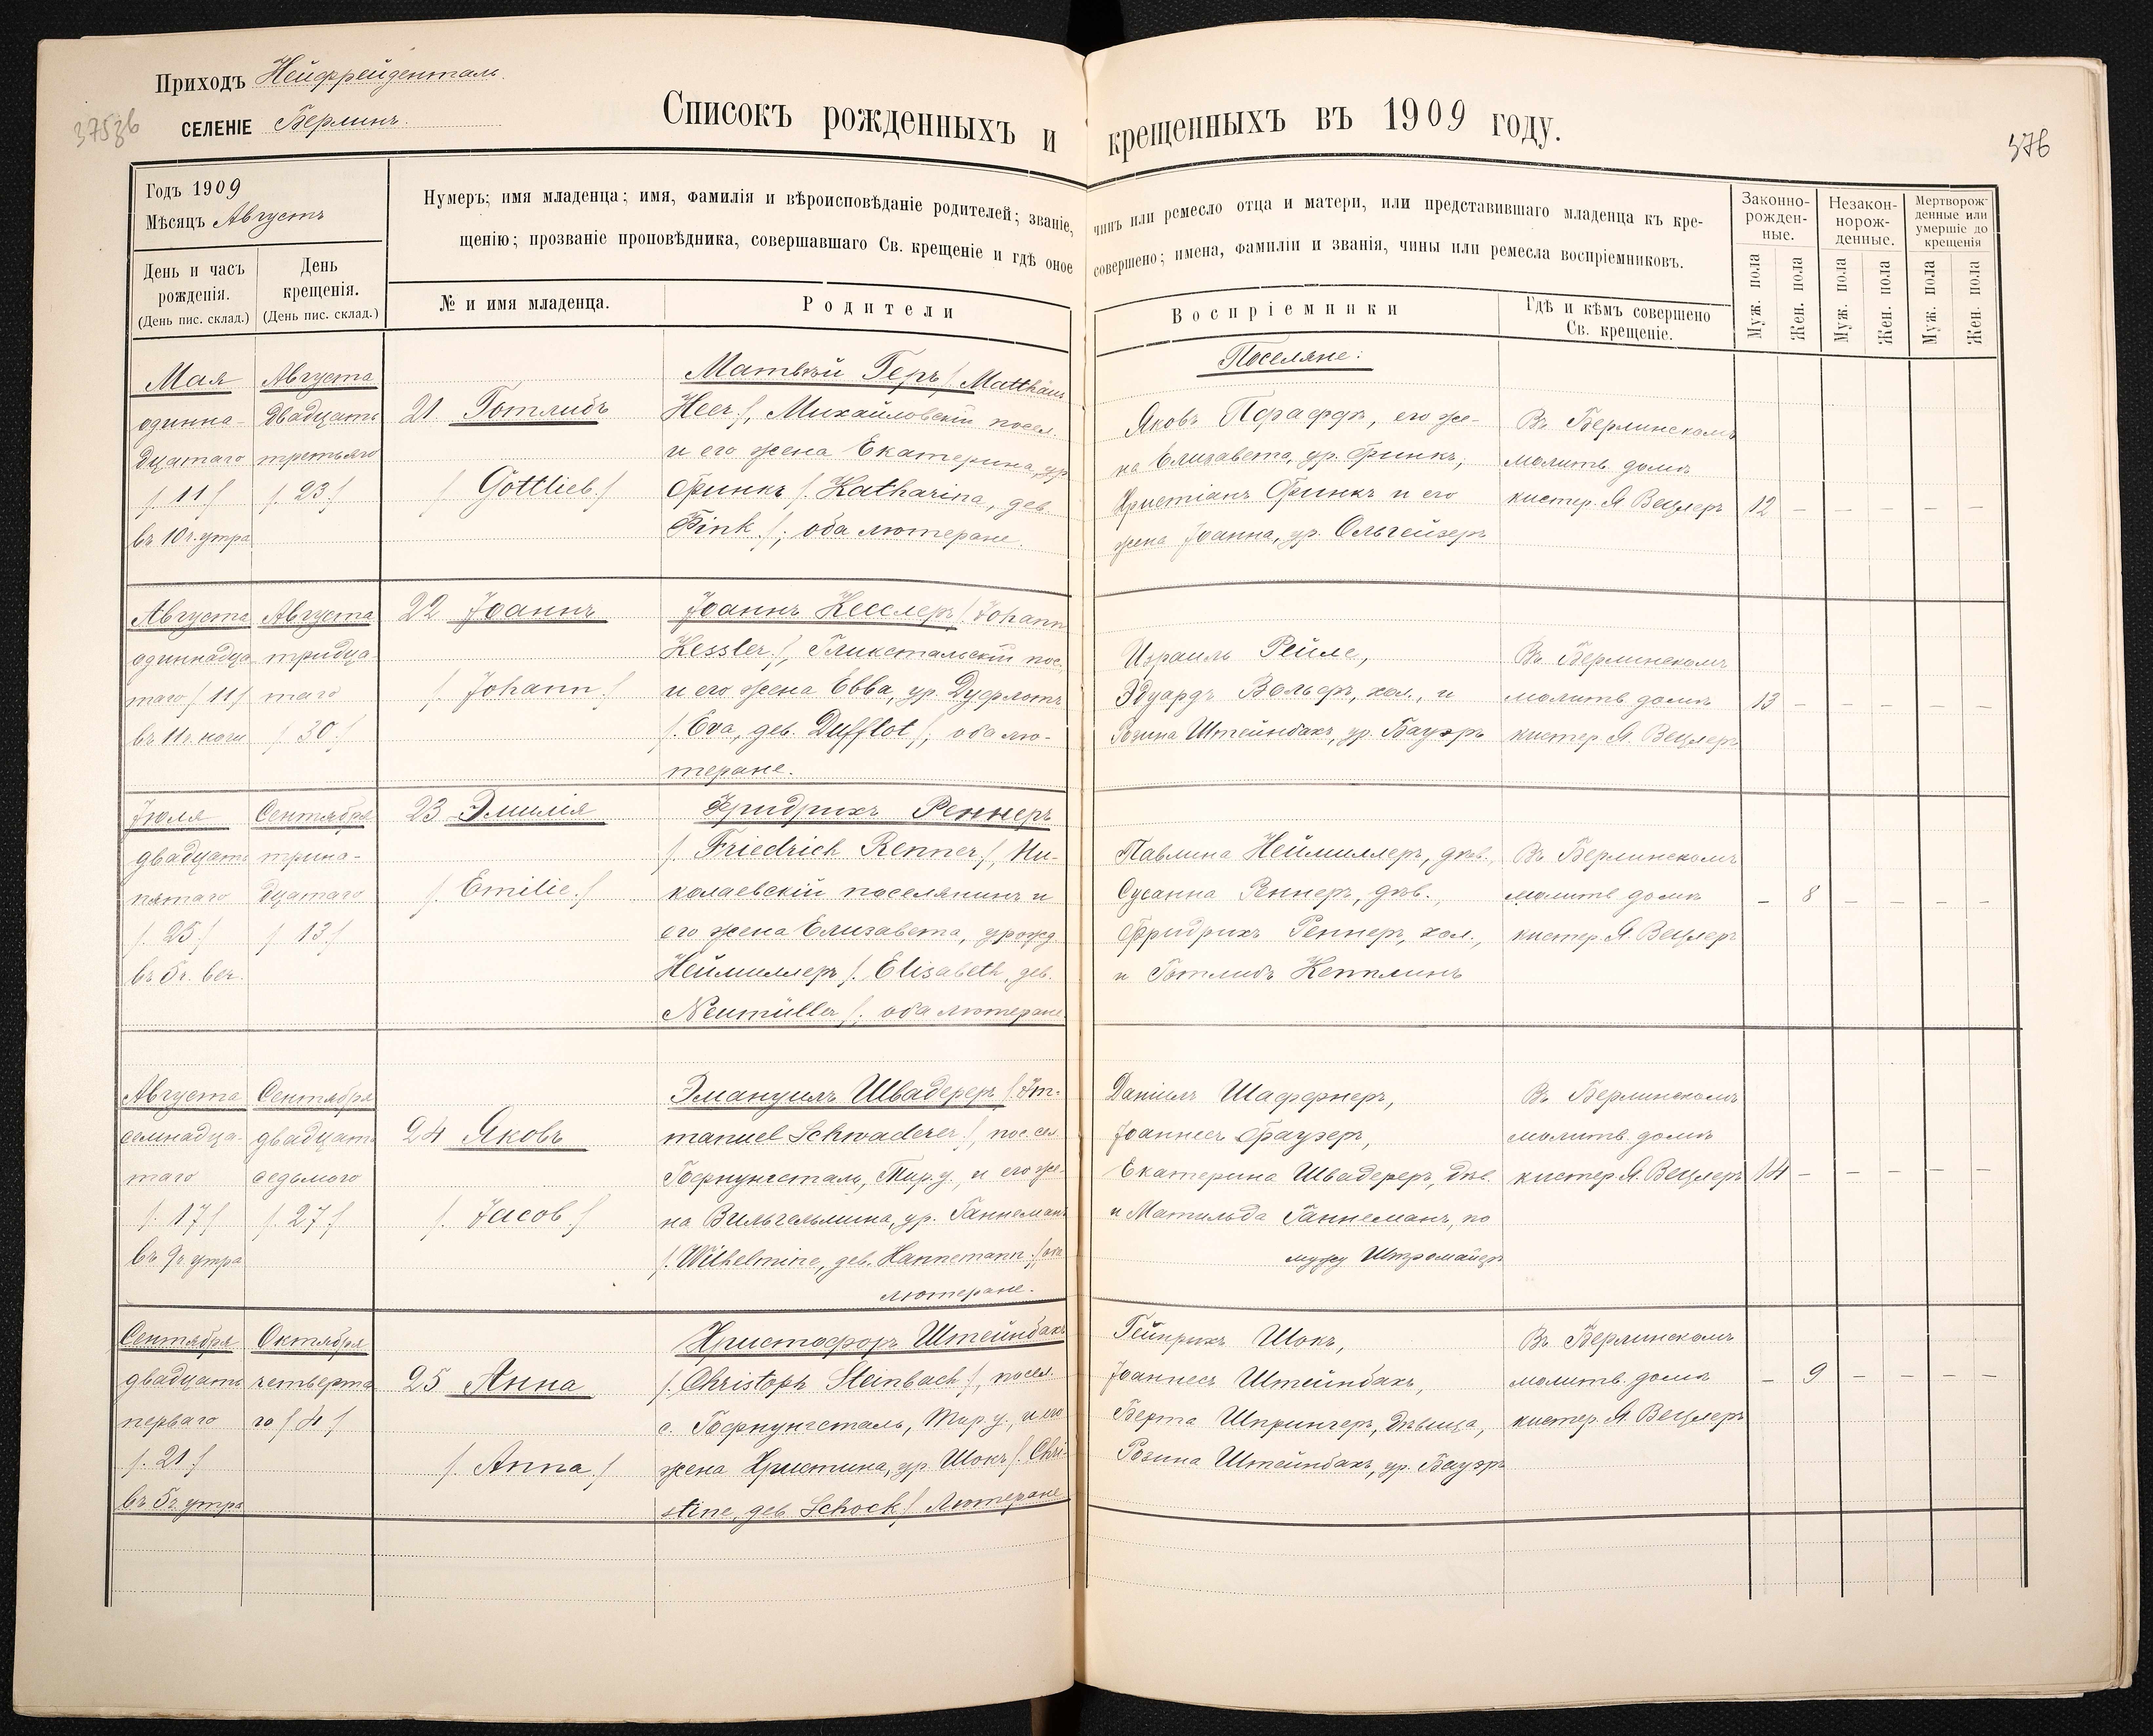 Приходъ Нейфрейденталь.
СЕЛЕНІЕ Берлинъ.
Списокъ рожденныхъ и крещенныхъ въ 1909 году.
376
Годъ 1909
Мѣсяцъ Августъ
День и часъ рожденія.
(День пис. склад.)
День крещенія.
(День пис. склад.)
Нумеръ; имя младенца; имя, фамилія и вѣроисповѣданіе родителей; званіе, чинъ или ремесло отца и матери, или представившаго младенца къ кре-
щенію; прозваніе проповѣдника, совершавшаго Св. крещеніе и гдѣ оное совершено; имена, фамиліи и званія, чины или ремесла воспріемниковъ.
№ и имя младенца.
Родители
Воспріемники
Гдѣ и кѣмъ совершено
Св. крещеніе.
Законно-
рожден-
ные.
Незакон-
норож-
денные.
Мертворож-
денные или
умершіе до
крещенія
Муж. пола
Жен. пола
Муж. пола
Жен. пола
Муж. пола
Жен. пола
Мая
одинна-
дцатаго
/. 11 ./
въ 10 ч. утра
Августа
двадцать
третьяго
/. 23 ./
21. Готлибъ
/. Gottlieb ./
Матвѣй Геръ /. Matthäus
Heer ./, Михайловскій посел.
и его жена Екатерина, ур.
Финкъ /. Katharina, дев.
Fink ./; оба лютеране.
Поселяне:
Яковъ Пфаффъ, его же-
на Елизавета, ур. Финкъ;
Христіанъ Финкъ и его
жена Іоанна, ур. Ольгейзеръ
Въ Берлинскомъ
молитв. домѣ
кистер. Я. Вецлеръ
12 – – – – –
Августа
одиннадца
таго /. 11 ./
въ 11 ч. ночи
Августа
тридца-
таго
/. 30 ./
22 Іоаннъ
/. Johann ./
Іоаннъ Кесслеръ /. Johann
Kessler ./, Гликстальскій пос.
и его жена Евва, ур. Дуфлотъ
/. Eva, дев. Dufflot ./; оба лю-
теране.
Израиль Рейле,
Эдуардъ Вольфъ, хол., и
Розина Штейнбахъ, ур. Бауэръ
Въ Берлинскомъ
молитв. домѣ
кистер. Я. Вецлеръ
13 – – – – –
Іюля
двадцать
пятаго
/. 25 ./
въ 5 ч. веч.
Сентября
трина-
дцатаго
/. 13 ./
23 Эмилія
/. Emilie ./
Фридрихъ Реннеръ
/. Friedrich Renner ./, Ни-
колаевскій поселянинъ и
его жена Елизавета, урожд.
Неймиллеръ /. Elisabeth, дев.
Neumüller ./. оба лютеране
Павлина Неймиллеръ, дѣв.,
Сусанна Реннеръ, дѣв.,
Фридрихъ Реннеръ, хол.,
и Готлибъ Кепплинъ
Въ Берлинскомъ
молитв. домѣ
кистер. Я. Вецлеръ
– 8 – – – –
Августа
семнадца-
таго
/. 17 ./
въ 9 ч. утра
Сентября
двадцать
седьмого
/. 27 ./
24 Яковъ
/. Jacob ./
Эмануилъ Швадереръ /. Em-
manuel Schwaderer ./, пос. сел.
Гофнунгсталь, Тир. у., и его же-
на Вильгельмина, ур. Ганнеманъ
/. Wilhelmine, дев. Hannemann ./ оба
лютеране.
Даніилъ Шаффнеръ,
Іоаннесъ Фраузеръ,
Екатерина Швадереръ, дѣв.
и Матильда Ганнеманъ, по
мужу Штромайеръ
Въ Берлинскомъ
молитв. домѣ
кистер. Я. Вецлеръ
14 – – – – –
Сентября
двадцать
перваго
/. 21 ./
въ 5 ч. утра
Октября
четверта
го /. 4 ./
25 Анна
/. Anna ./
Христофоръ Штейнбахъ
/. Christoph Steinbach ./, посел.
с. Гофнунгсталь, Тир. у., и его
жена Христина, ур. Шокъ /. Chri-
stine, дев. Schock ./ Лютеране
Гейнрихъ Шокъ,
Іоаннесъ Штейнбахъ,
Берта Шпрингеръ, дѣвица,
Розина Штейнбахъ, ур. Бауэръ
Въ Берлинскомъ
молитв. домѣ
кистер. Я. Вецлеръ
– 9 – – – –